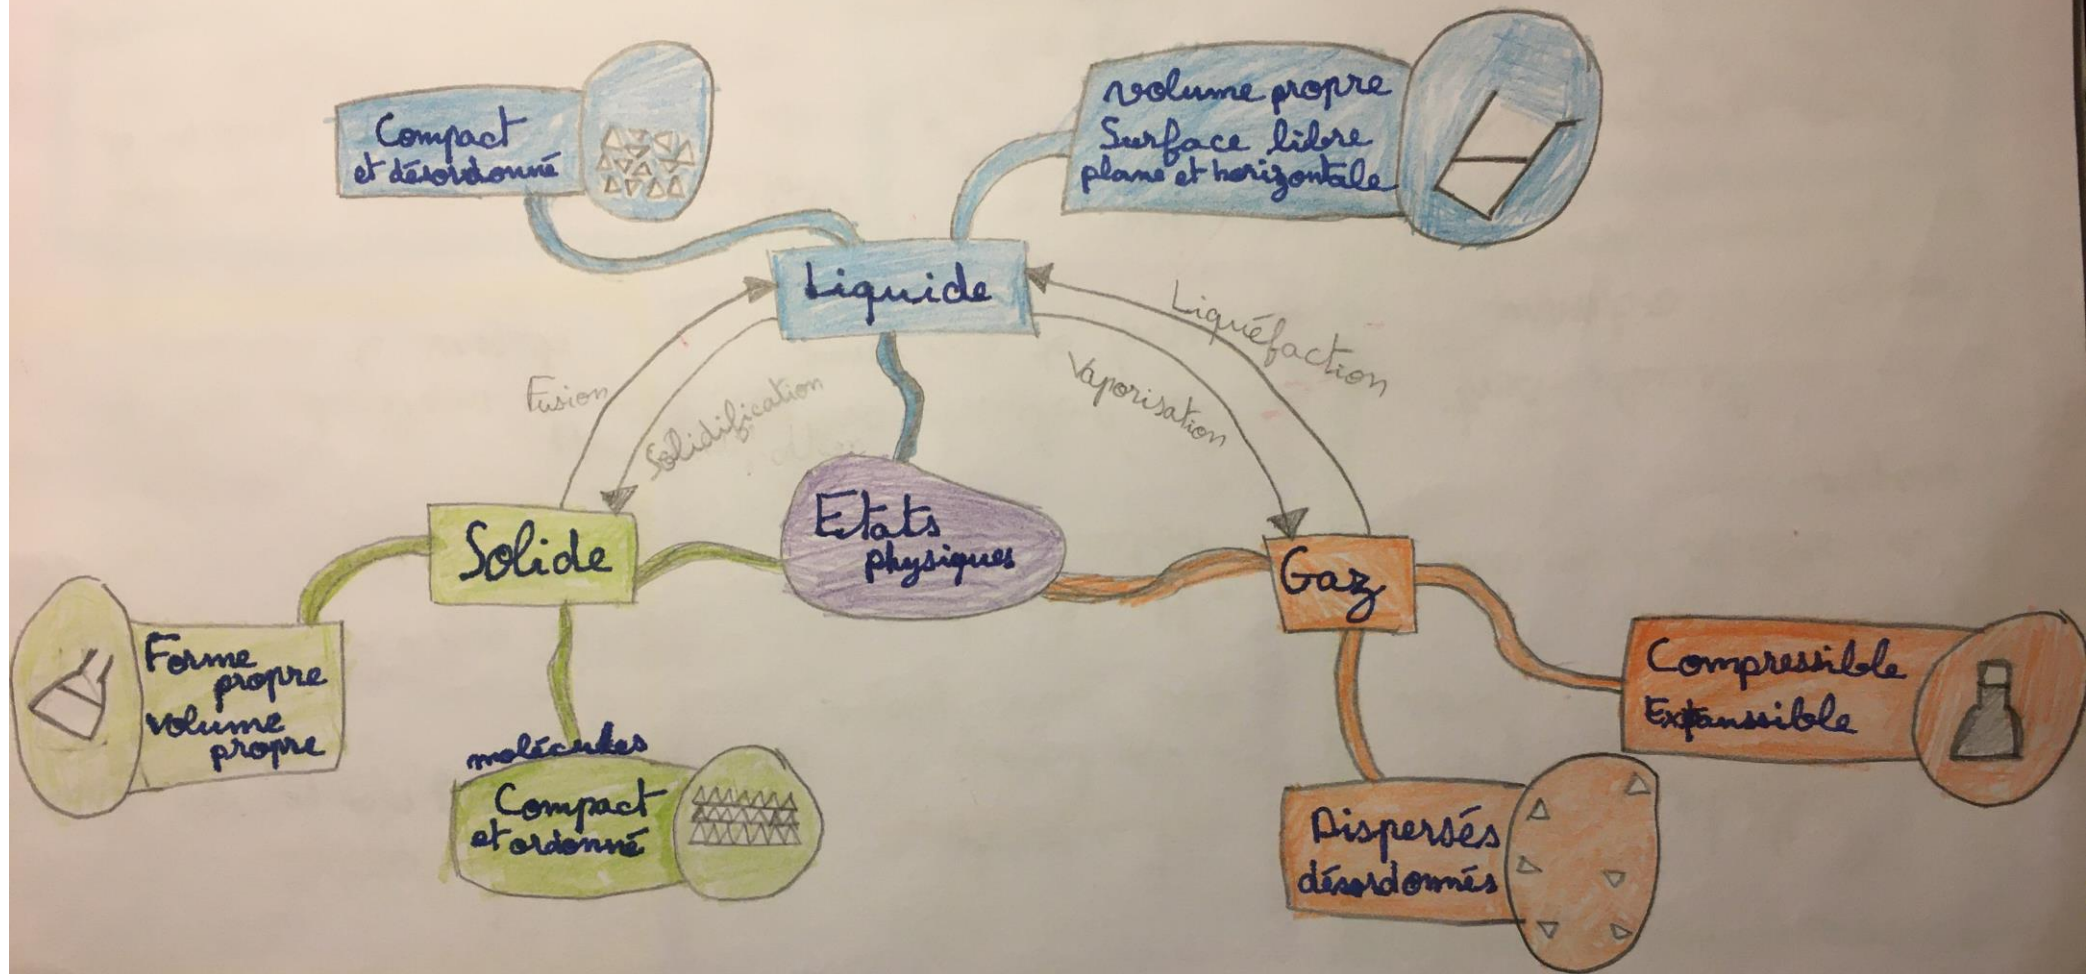 Compact
et désordonné
volume propre
Surface libre
plane et horizontale
Liquide
Fusion
Solidification
Vaporisation
Liquéfaction
Etats
physiques
Solide
Gaz
Forme
propre
volume
propre
molécules
Compact
et ordonné
Compressible
Expanssible
Dispersés
désordonnés